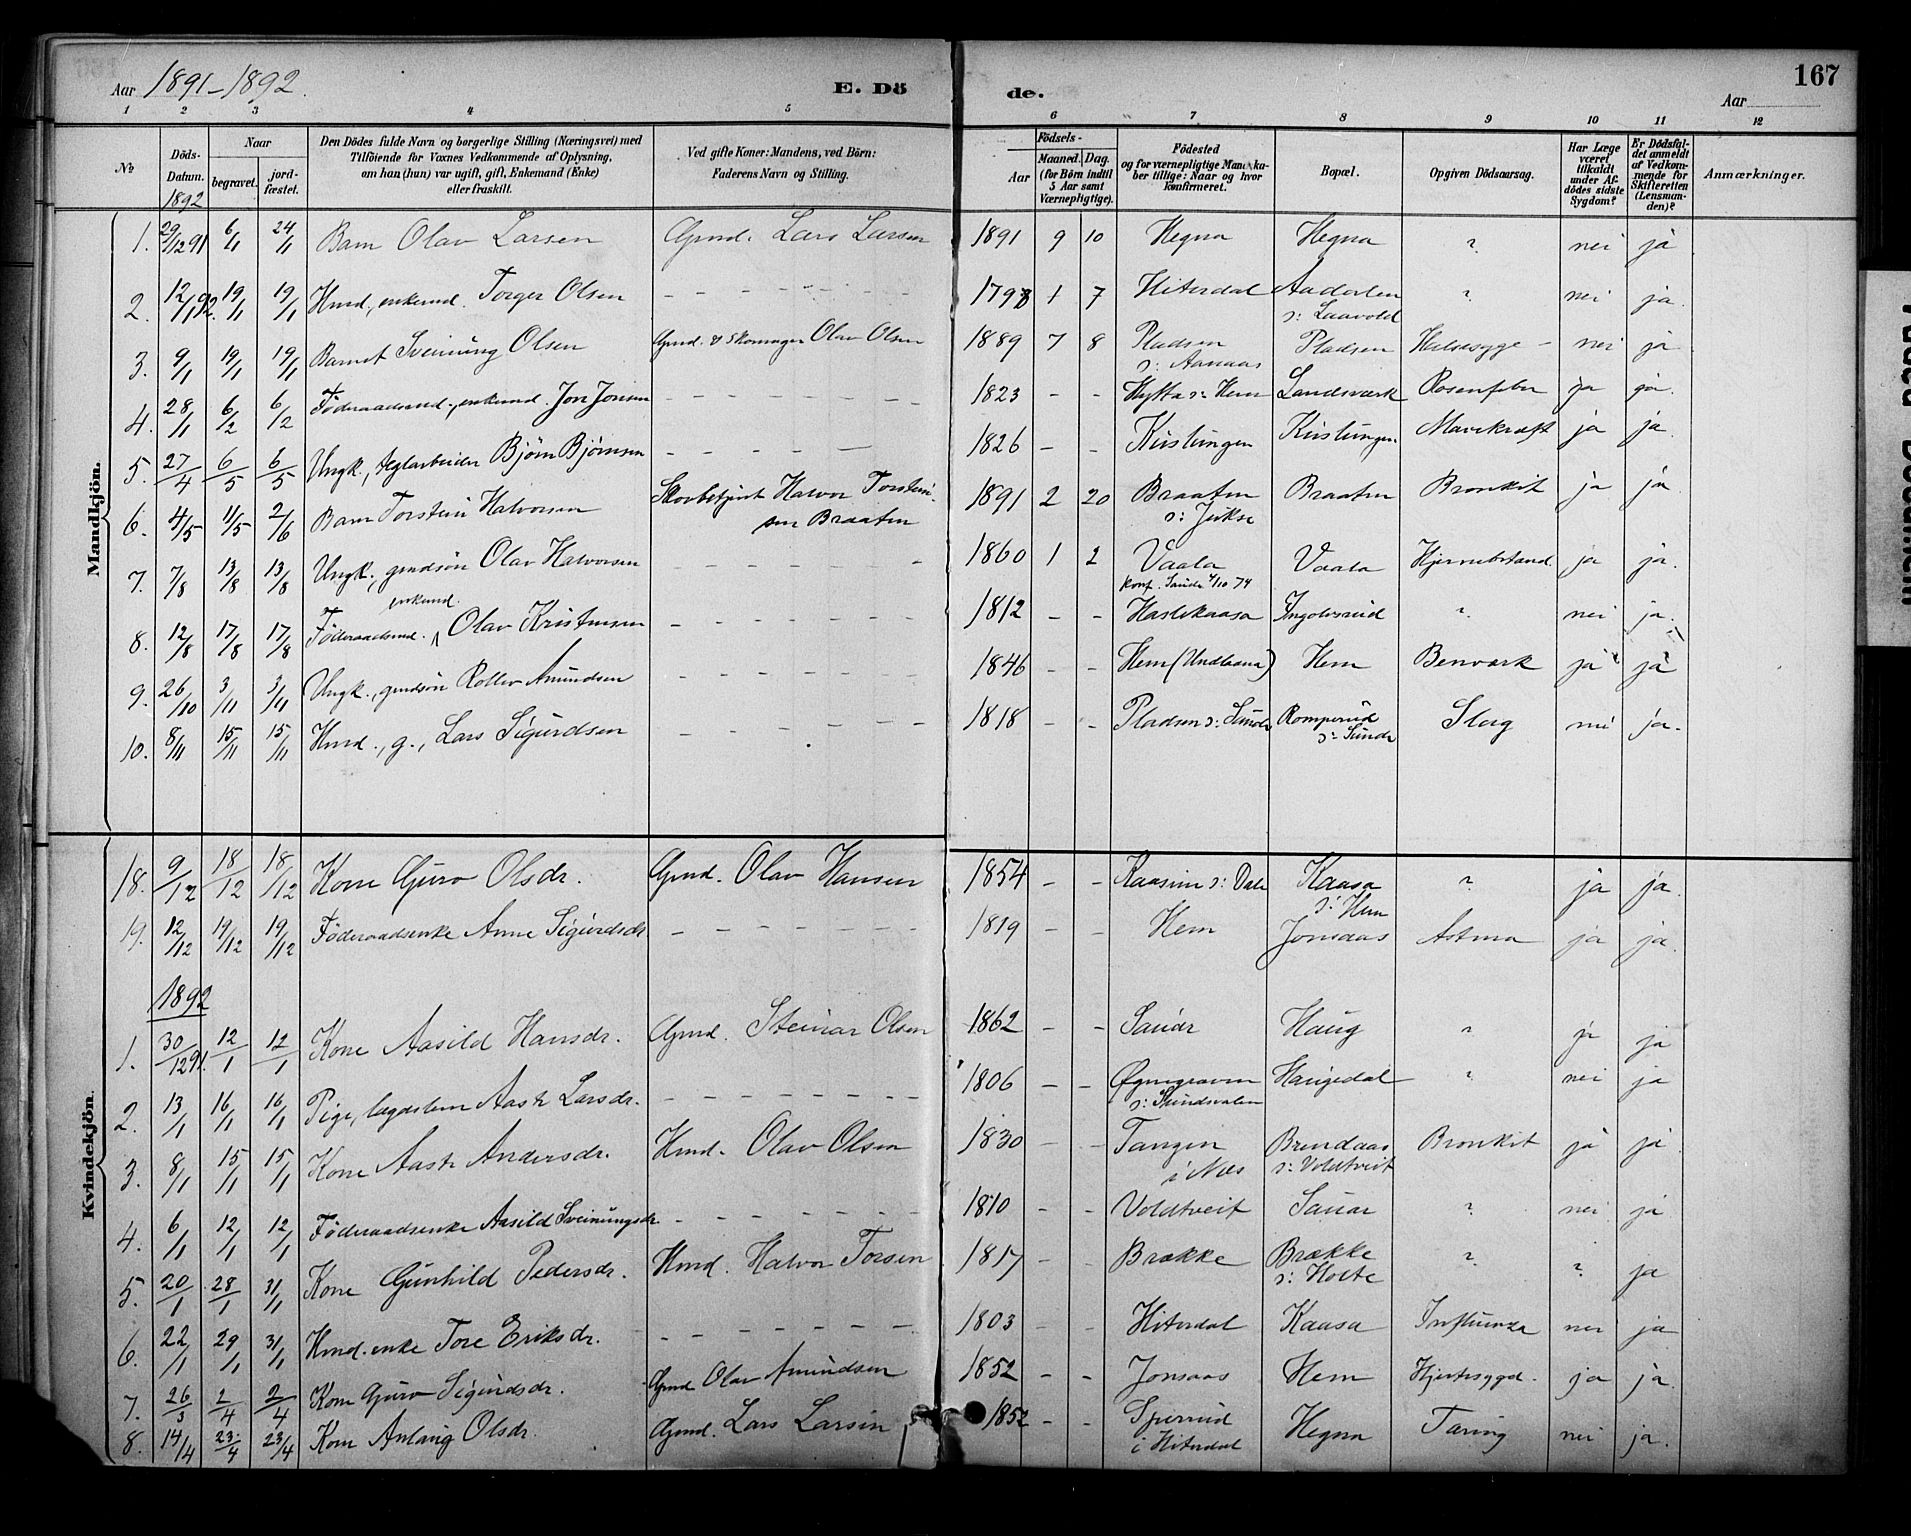 Aar 1891-1892. E. Dö
de. Aar 167
1 2 3 4 5 6 7 8 9 10 11 12
No. Döds-Datum. Naar begravet. jord-fæstet. Den Dödes fulde Navn og borgerlige Stilling (Næringsvei) med Tilföiende for Voxnes Vedkommende af Oplysning, om han (hun) var ugift, gift, Enkemand (Enke) eller fraskilt. Ved gifte Koner: Mandens, ved Börn: Faderens Navn og Stilling. Födsels- Aar Maaned. Dag. (for Börn indtil 5 Aar samt Værnepligtige). Födested og for værnepligtige Mandskaber tillige: Naar og hvor konfirmeret. Bopæl. Opgiven Dödsaarsag. Har Læge været tilkaldt under Afdödes sidste Sygdom? Er Dödsfaldet anmeldt af Vedkommende for Skifteretten (Lensmanden)? Anmærkninger.
Mandkjön.
1892
1. 29/12 91 6/1 24/1 Barn Olav Larsen Gmd. Lars Larsen 1891 9 10 Hegna Hegna ? nei ja
2. 12/1 92. 19/1 19/1 Hmd., enkemd. Torger Olsen - - - - - 1798 1 7 Hiterdal ? nei ja.
3. 9/1 19/1 19/1 Barnet Sveinung Olsen Gmd. & Skomager Olav Olsen 1889 7 8 Pladsen Pladsen Halssyge - nei ja
s: Aanaas
4. 28/1 6/2 6/2 Föderaadsmd., enkemd. Jon Jonsen - - - - - 1823 - - Hytta s: Hem Landsværk Rosenfeber ja ja.
5. 27/4 6/5 6/5 Ungk., teglarbeider Bjørn Bjørnsen - - - - - 1826 - - Kirstingen Kirstingen. Mavekræft ja ja.
6. 4/5 11/5 2/6 Barn Torstein Halvorsen Skovbetjent Halvor Torstein- 1891 2 20 Braaten Braaten Bronkit ja ja.
sen Braaten s: Jukse
7. 7/8 13/8 13/8 Ungk., gmdsön Olav Halvorsen - - - - - 1860 1 2 Vaala Vaala Hjernebetænd. ja ja.
konf. Saude 4/10 74
enkemd.
8. 12/8 17/8 17/8 Föderaadsmd. Olav Kristensen - - - - - 1812 - - Haslekaasa Ingolvsrud ? nei ja.
9. 26/10 3/11 3/11 Ungk., gmdsön Rollev Amundsen - - - - - 1846 - - Hem (Undlaana) Hem Benværk ja ja
10. 8/11 15/11 15/11 Hmd., g., Lars Sigurdsen - - - - - 1818 - - Pladsen s: Sunde Romperud Slag nei ja.
s: Sunde
Kvindekjön.
18. 9/12 18/12 18/12 Kone Guro Olsdr. Gmd. Olav Hansen 1854 - - Kaasine s: Dale Kaasa ? ja ja.
s: Hem
19. 12/12 19/12 19/12 Föderaadsenke Anne Sigurdsdr. - - - - - 1819 - - Hem Jonsaas Astma ja ja.
1892
1. 30/12 91. 12/1 12/1 Kone Aasild Hansdr. Gmd. Steinar Olsen 1862 - - Sauar Haug ? ja ja
2. 13/1 16/1 16/1 Pige, lægdslem Aaste Larsdr. - - - - - 1806 - - Øgnegraven Haugedal ? nei ja
3. 8/1 15/1 15/1 Kone Aaste Andersdr. Hmd. Olav Olsen 1830 - - Tangen Brendaas Bronkit ja ja.
i Næs s: Voldtveit
4. 6/1 12/1 12/1 Föderaadsenke Aasild Sveinungsdr. - - - - - 1810 - - Voldtveit Sauar ? nei ja
5. 20/1 28/1 31/1 Kone Gunhild Pedersdr. Hmd. Halvor Torsen 1817 - - Brække Brække ? ? ja
s: Holte
6. 22/1 29/1 31/1 Hmd. enke Tore Eriksdr. - - - - - 1803 - - Hiterdal Kaasa Influenza nei ja
7. 26/3 2/4 2/4 Kone Guro Sigurdsdr. Gmd Olav Amundsen 1852 - - Jonsaas Hem Hjertesygd. ja ja.
8. 14/4 23/4 23/4 Kone Anlaug Olsdr. Gmd. Lars Larsen 1852 - - Sperrud Hegna Tæring nei ja.
i Hiterdal